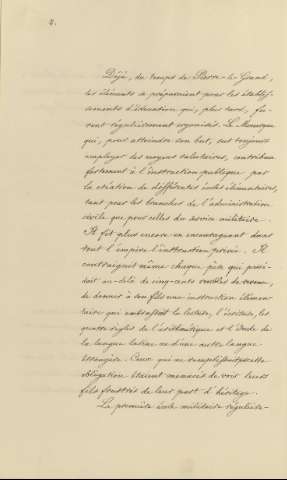 2.
Déjà, du temps de Pierre-le-Grand,
les éléments se préparaient pour les établis-
sements d'éducation qui, plus tard, fu-
rent régulièrement organisés. Le Monarque
qui, pour atteindre son but, sut toujours
employer des moyens salutaires, contribua
fortement à l'instruction publique par
la création de différentes écoles élémentaires,
tant pour les branches de l'administration
civile que pour celles du service militaire.
Il fit plus encore en encourageant dans
tout l'empire l'instruction privée. Il
contraignit même chaque père qui possé-
dait au-delà de cinq-cents roubles de revenu,
de donner à son fils une instruction élémen-
taire qui embrassât la lecture, l'écriture, les
quatre règles de l'arithmétique et l'étude de
la langue latine ou d'une autre langue
étrangère. Ceux qui ne remplissaient cette
obligation étaient menacés de voir leurs
fils frustrés de leur part d'héritage.
La première école militaire régulière-